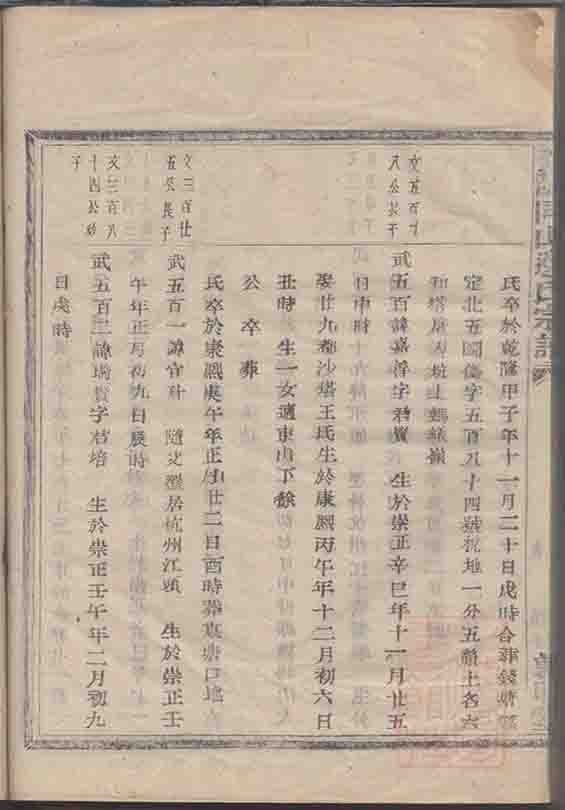 氏卒於乾隆甲子年十一月二十日戌時合葬錢塘
定北五圖傷字五百八十四號祝地一分五釐土名六
和塔
文五百
八公長子
武五百諱嘉浮字君寶 生於崇正辛巳年十一月廿五
日申時
娶廿九都沙塔王氏生於康熙丙午年十二月初六日
丑時 生一女適東山下餘
公卒葬
氏卒於康熙庚午年正月廿二日酉時葬
文三百廿
五公長子
武五百一諱官科 隨父遷居杭州江頭 生於崇正壬
午年正月初九日辰時
文三百八
十四公幼
子
武五百三諱瑞寶字君培 生於崇正壬午年二月初九
日戌時